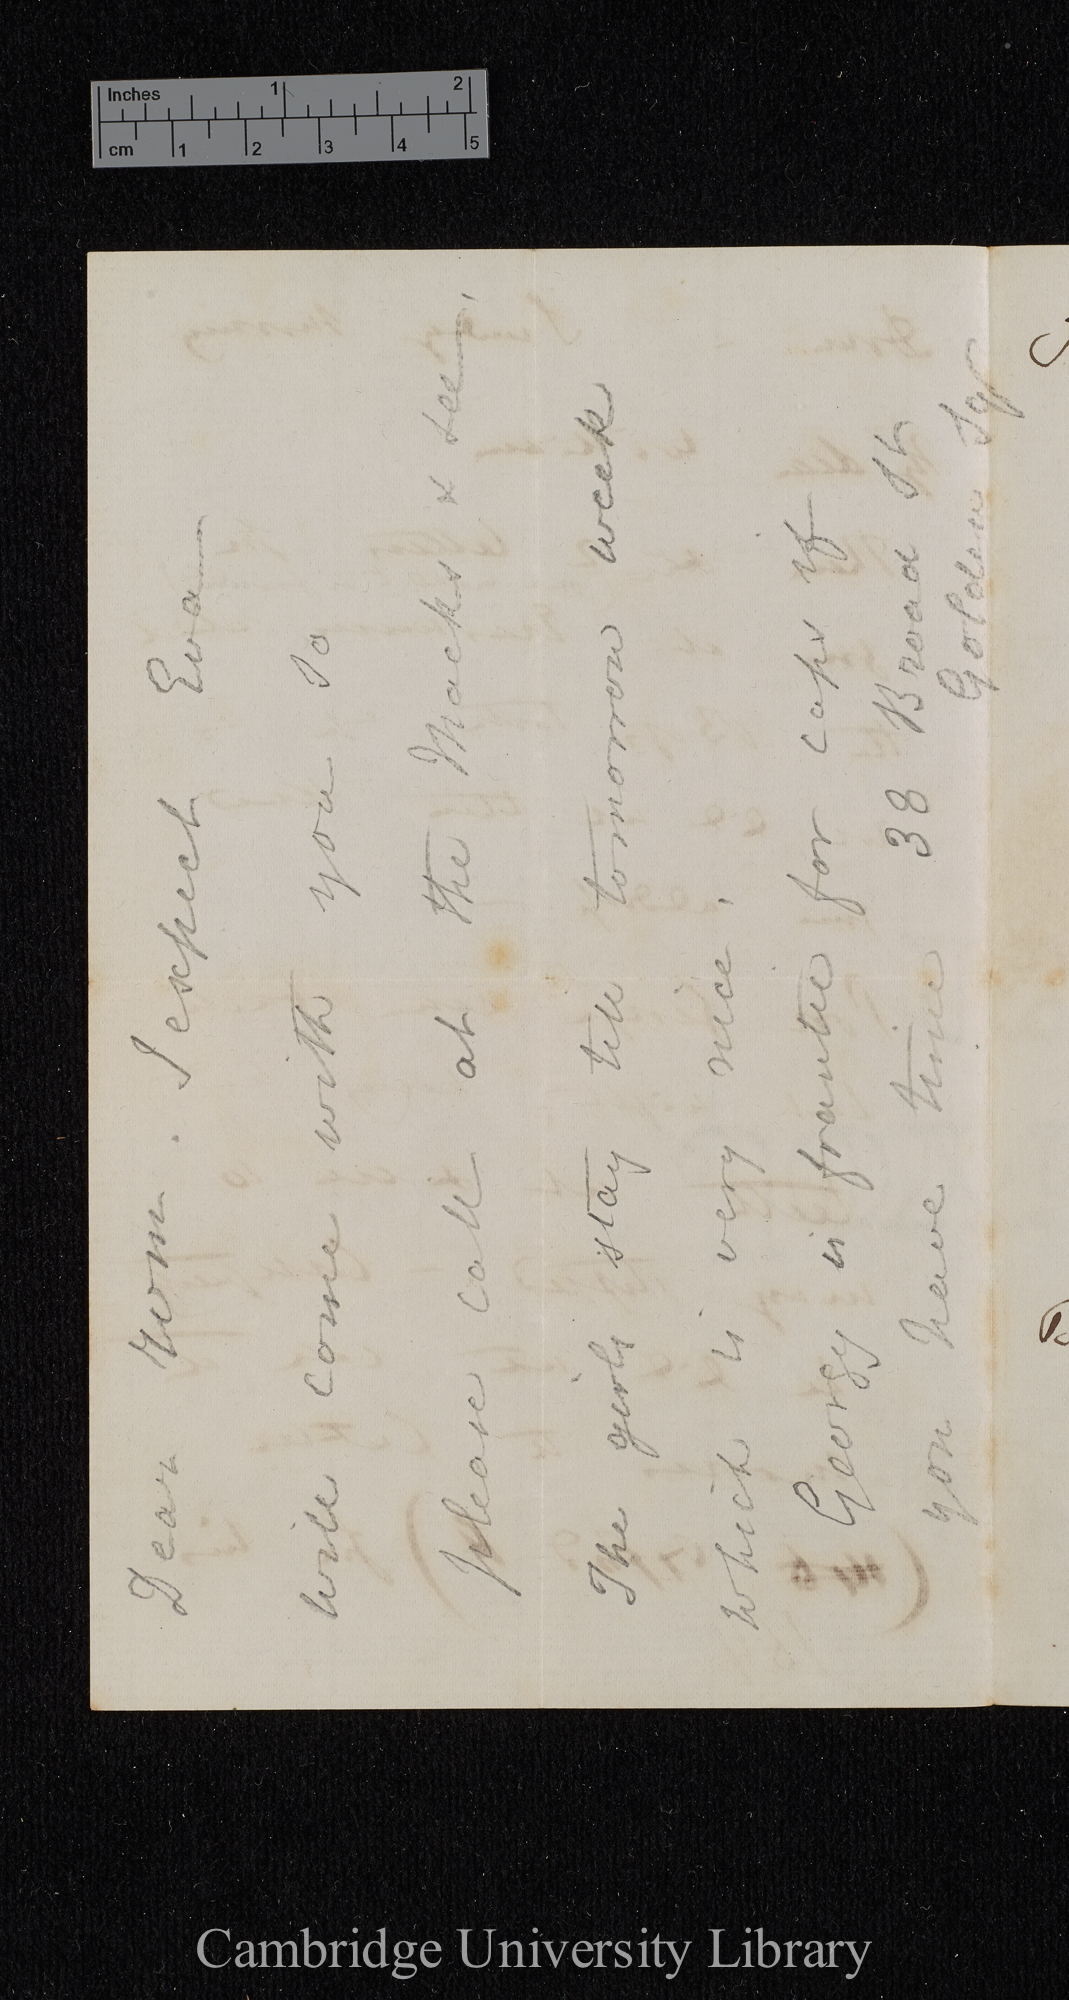 Inches 1 2
cm 1 2 3 4 5
Dear Mom. I expect Eva
will come with you So
please call at the Macks & see,
The girls stay till tomorrow week
which is very nice,
Georgy is frantic for caps if
you have time 38 Broad St
Golden Sqr
Cambridge University Library